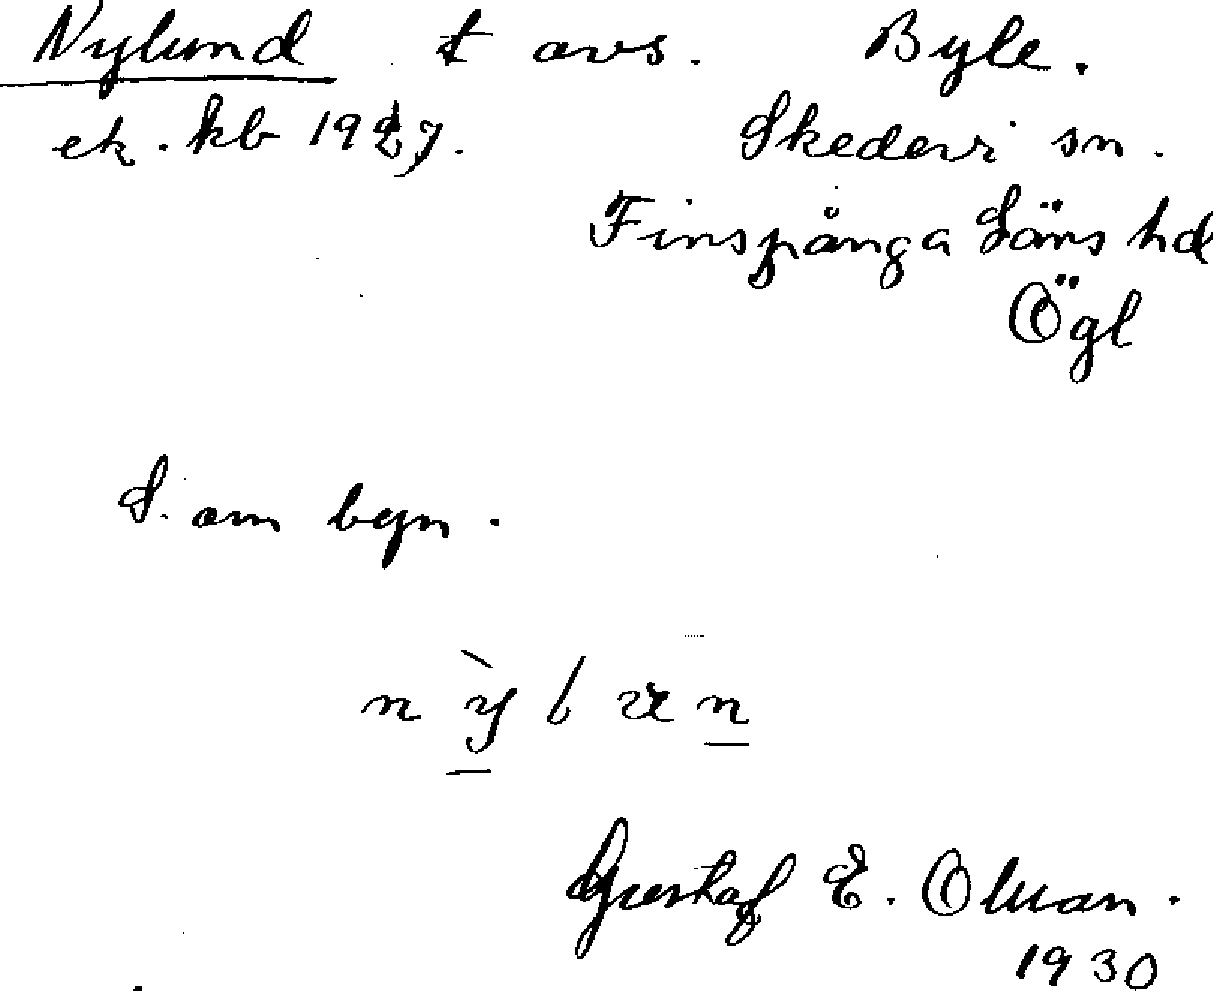 Nylund t avs. Byle.
ek. kb 1927. Skedevi sn.
Finspånga Läns hd
Ögl
S. om byn.
Gustaf E. Olman.
1930